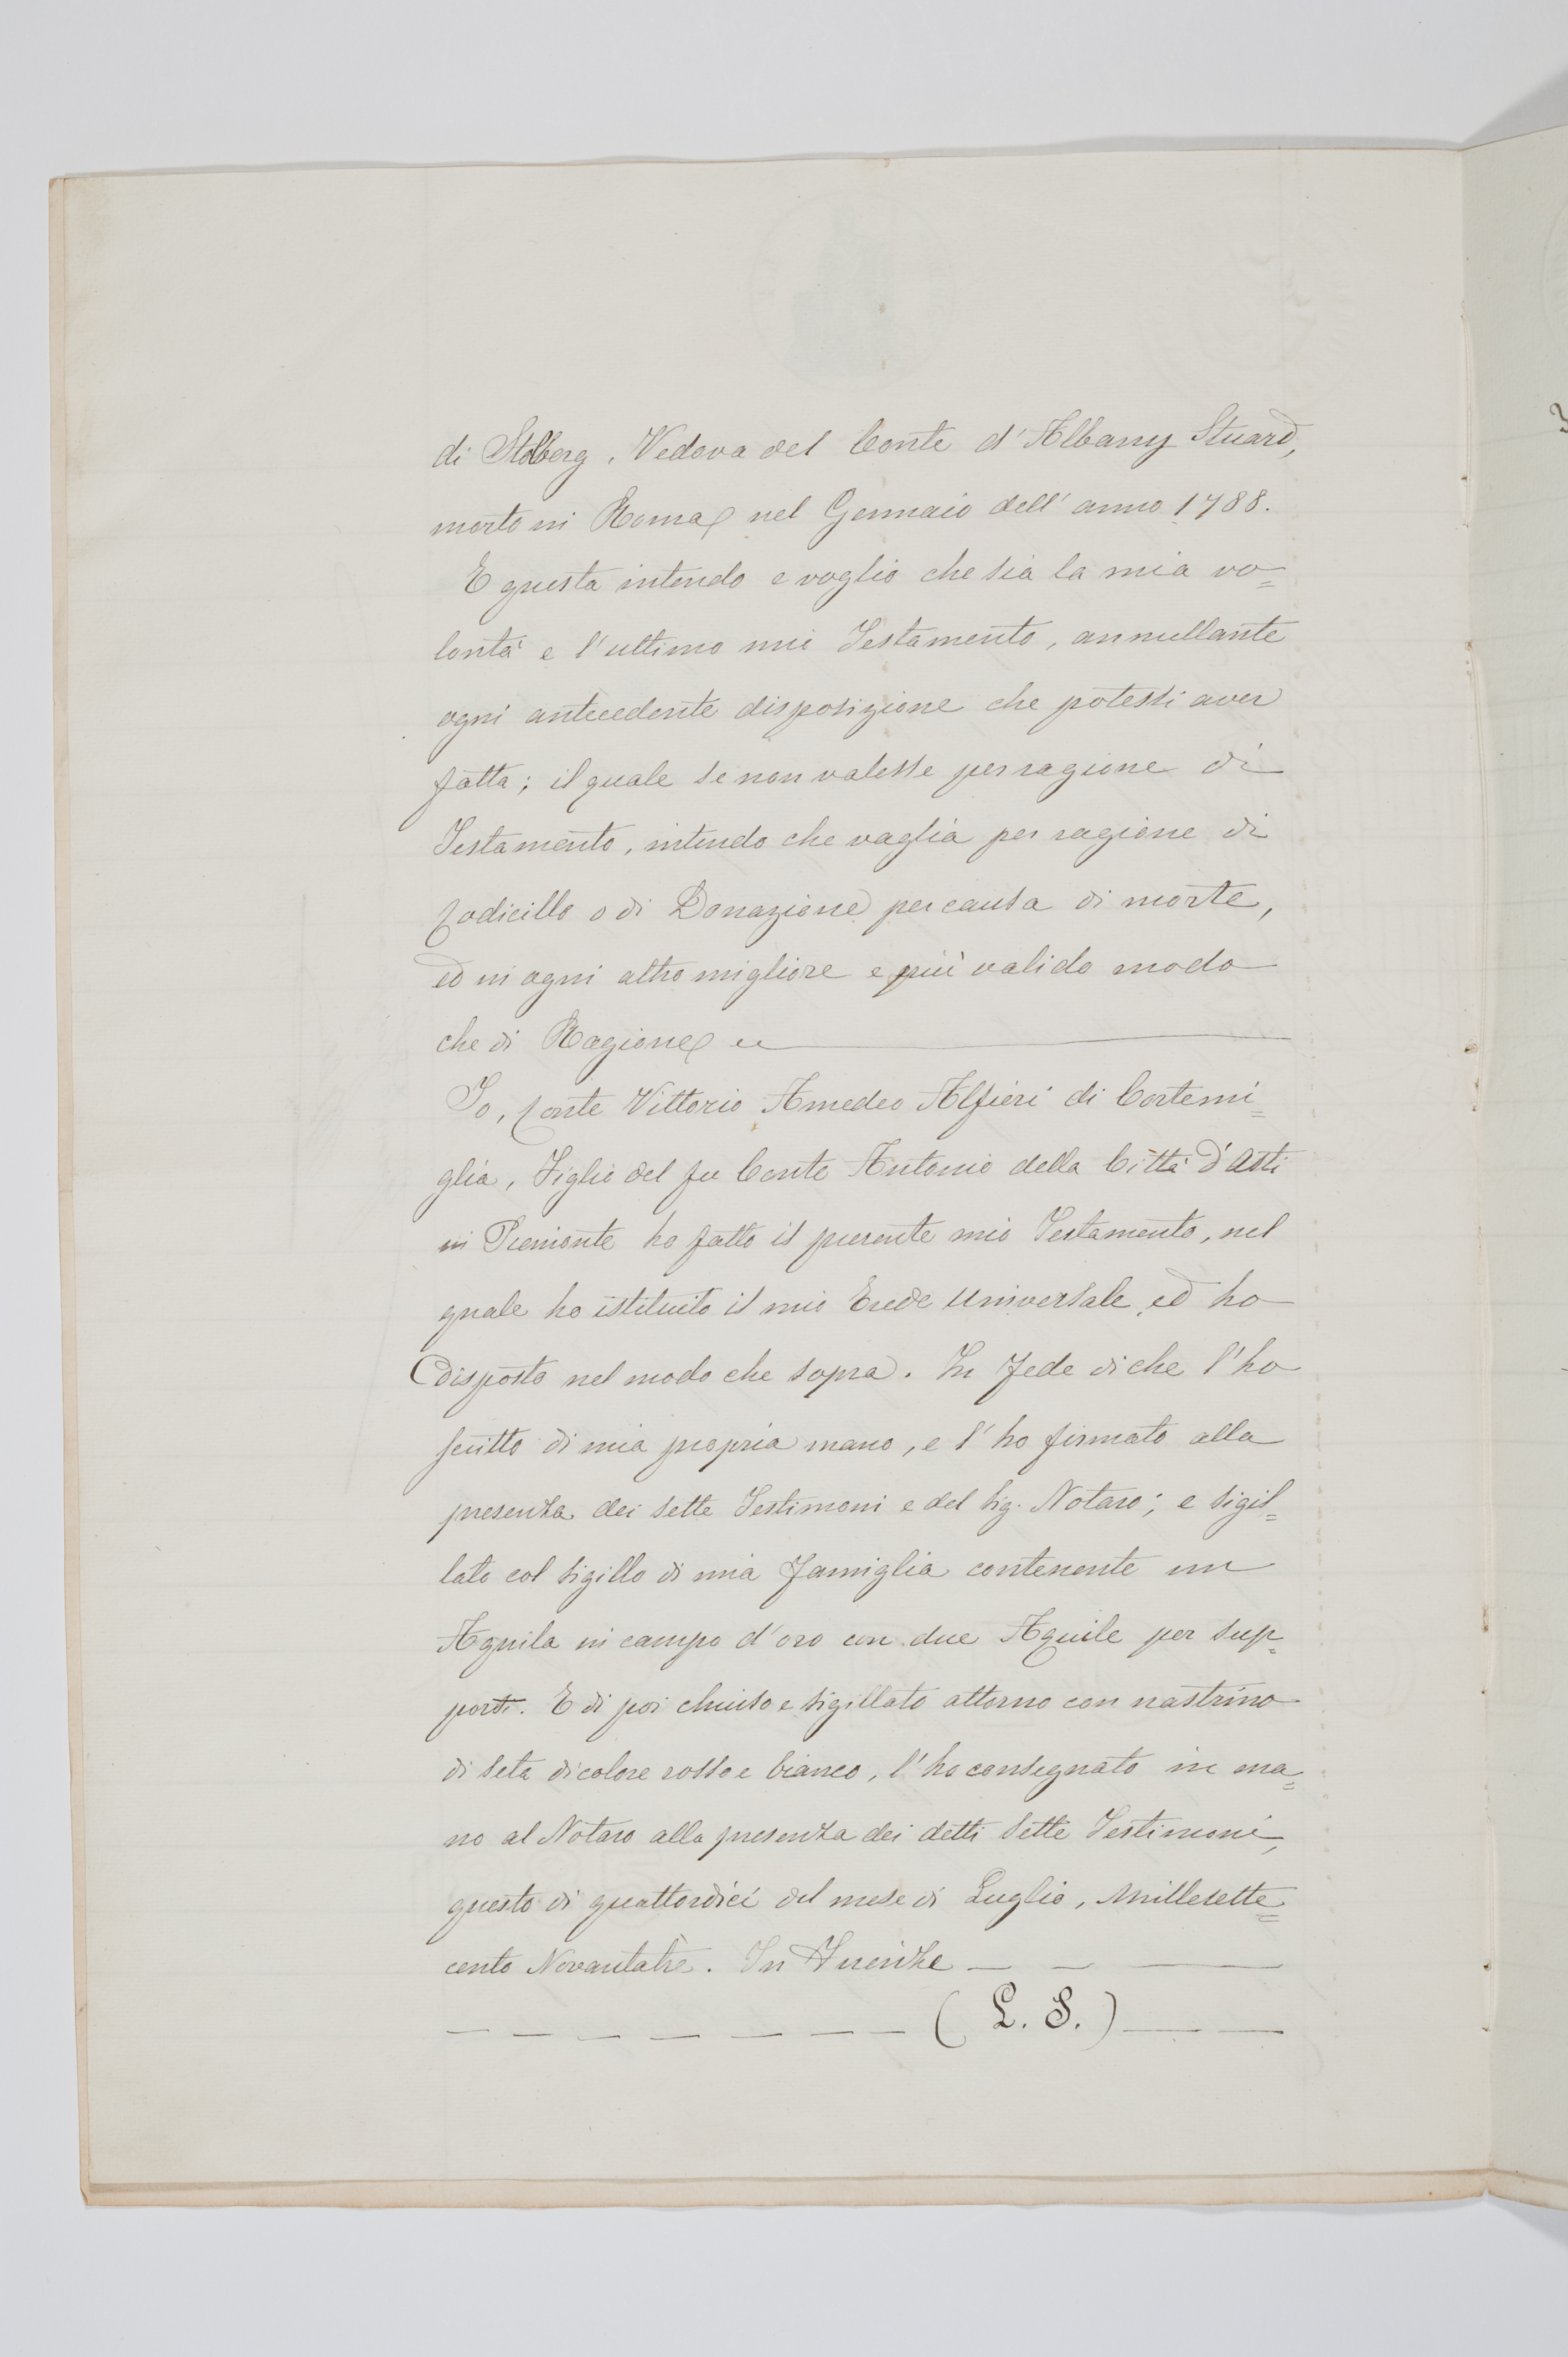 di Stolberg, Vedova del Conte d'Albany Stuard,
morto in Roma nel Gennaio dell'anno 1788.
E questa intendo e voglio che sia la mia vo=
lontà e l'ultimo mio Testamento, annullante
ogni antecedente disposizione che potessi aver
fatta; il quale se non valesse per ragione di
Testamento, intendo che vaglia per ragione di
Codicillo o di Donazione per causa di morte,
ed in ogni altro migliore e più valido modo
che di Ragione ec
Io, Conte Vittorio Amedeo Alfieri di Cortemi=
glia, Figlio del fu Conte Antonio della Città d'Asti
in Piemonte ho fatto il presente mio Testamento, nel
quale ho istituito il mio Erede universale ed ho
disposto nel modo che sopra. In fede di che l'ho
scritto di mia propria mano, e l'ho firmato alla
presenza dei sette Testimoni e del Sig. Notaro; e sigil=
lato col sigillo di mia famiglia contenente un
Aquila in campo d'oro con due Aquile per sup=
porti. E di poi chiuso e sigillato attorno con nastrino
di seta di colore rosso e bianco, l'ho consegnato in ma=
no al Notaro alla presenza dei detti sette Testimoni,
questo di quattordici del mese di Luglio, Millesette=
cento Novantatrè. In Firenze — — —
— — — — — — — (L. S.) — —